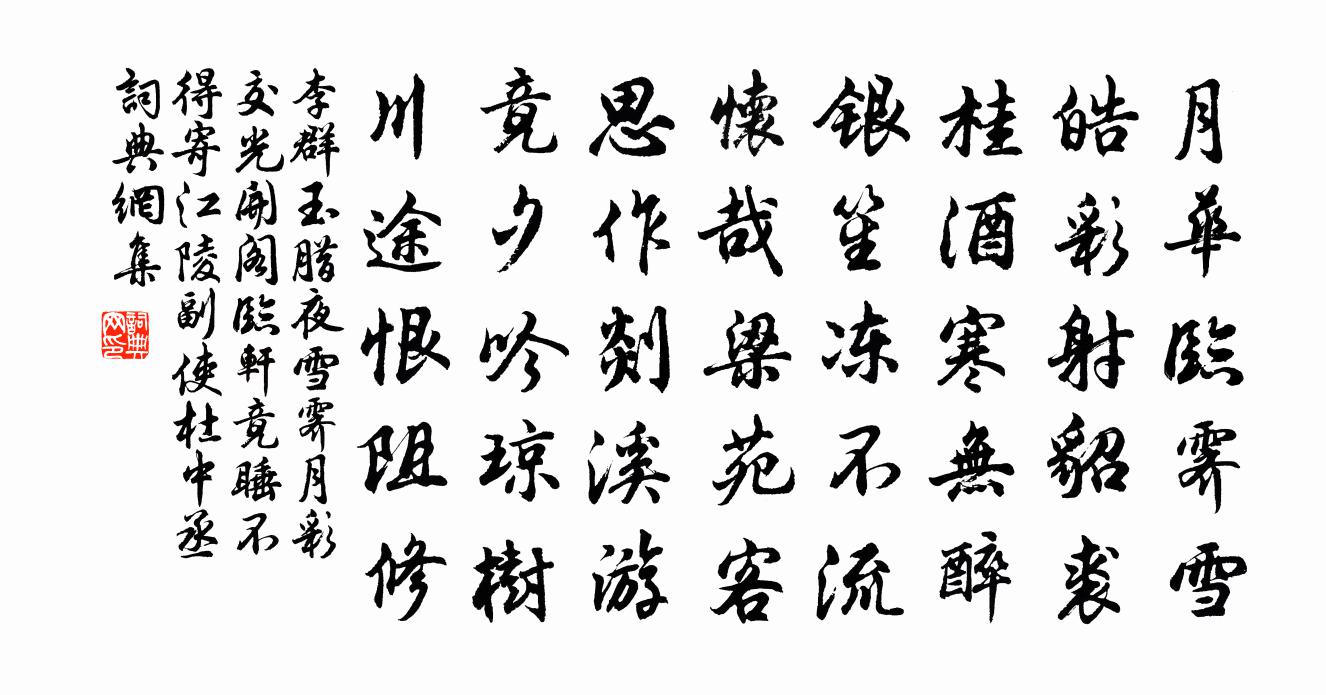 月華臨霽雪
皓彩射貂裘
桂酒寒無醉
银笙冻不流
懷哉梁苑客
思作剡溪游
竟夕吟琼樹
川途恨阻修
李群玉腊夜雪霽月彩
交光開阁臨軒竟睡不
得寄江陵副使杜中丞
詞典網集
詞典网印